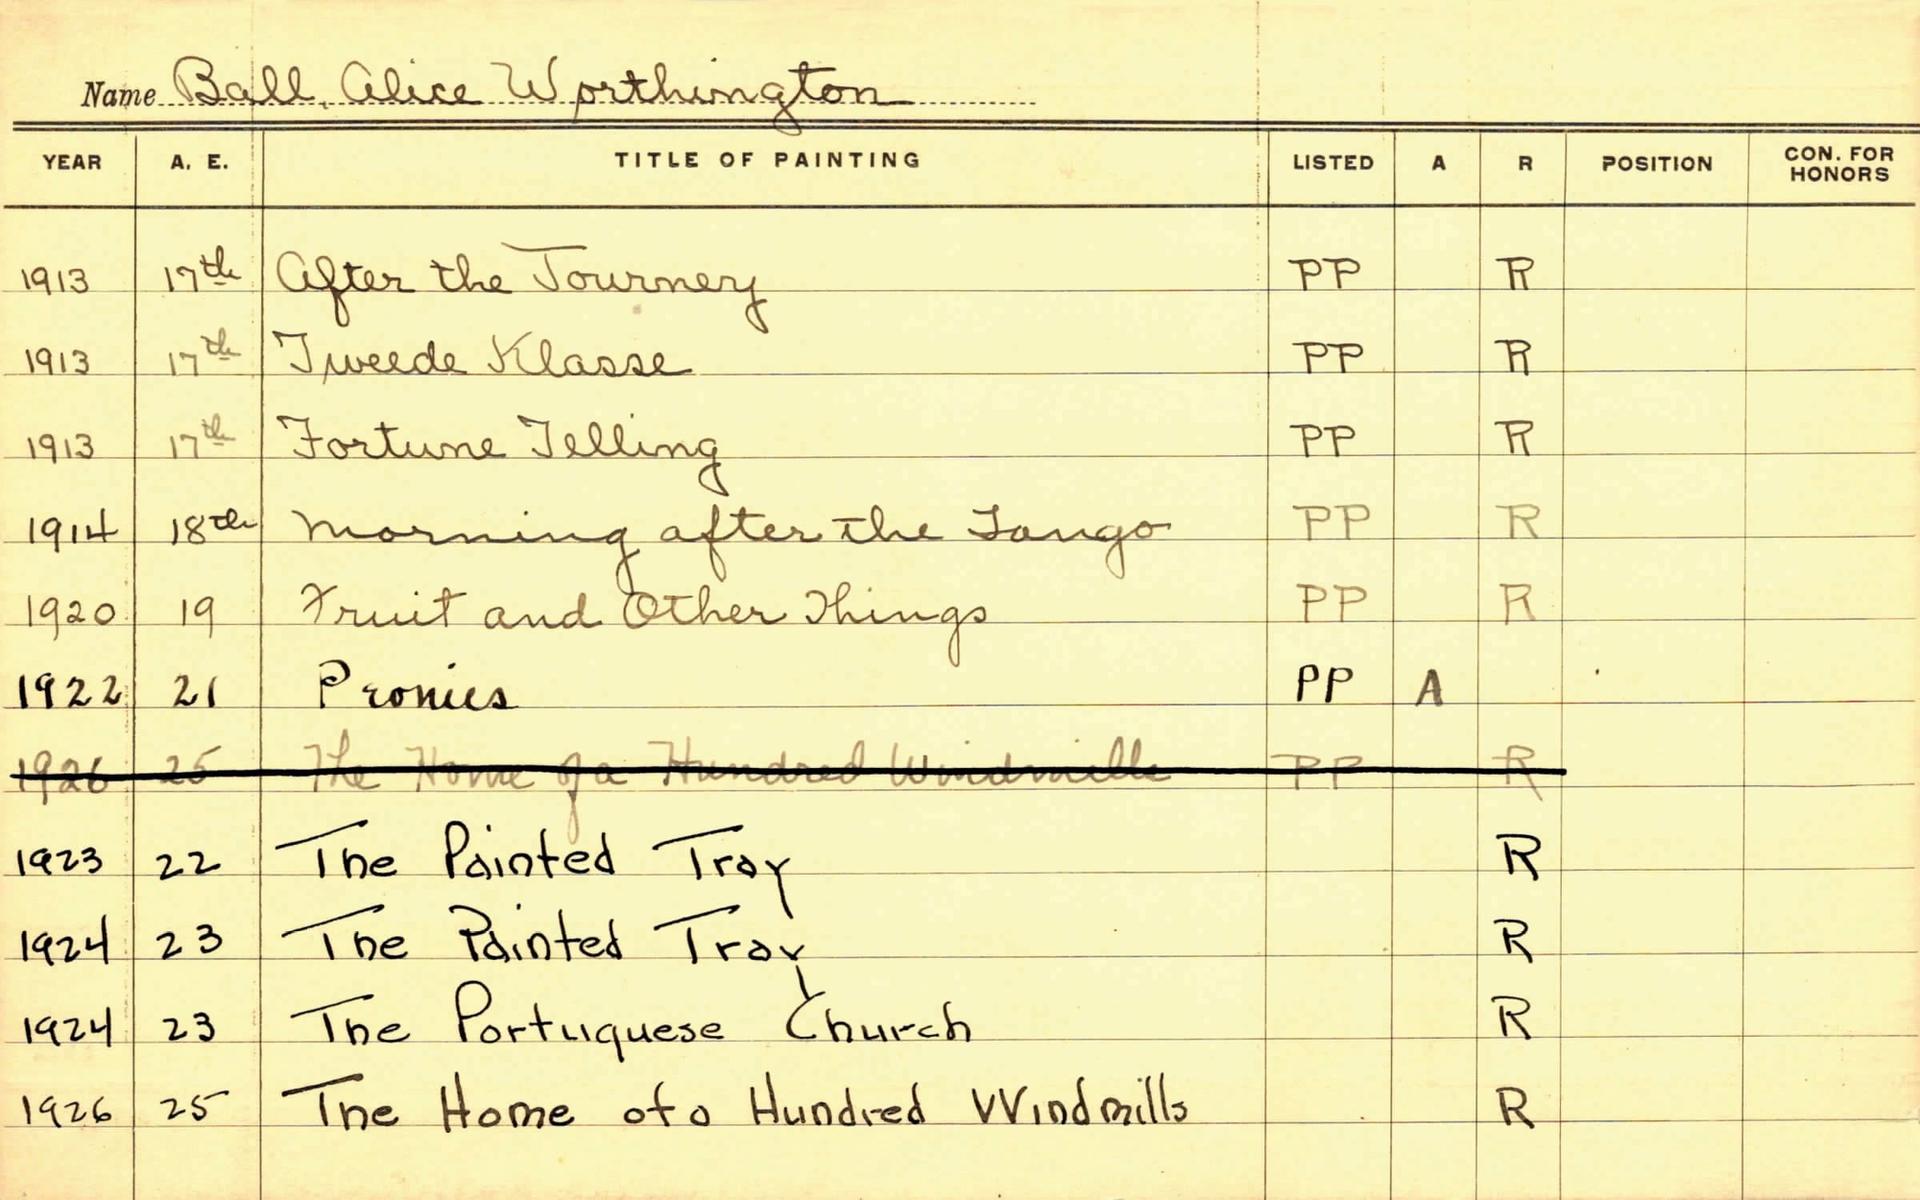 Name Ball, Alice Worthington
YEAR A. E. TITLE OF PAINTING LISTED A R POSITION CON. FOR HONORS
1913 17th After the Journey PP R
1913 17th Tweede Klasse PP R
1913 17th Fortune Telling PP R
1914 18th Morning after the Tango PP R
1920 19 Fruit and Other Things PP R
1922 21 Peonies PP A
1926 25 The Home of a Hundred Windmills PP R
1923 22 The Painted Tray R
1924 23 The Painted Tray R
1924 23 The Portuguese Church R
1926 25 The Home of a Hundred Windmills R